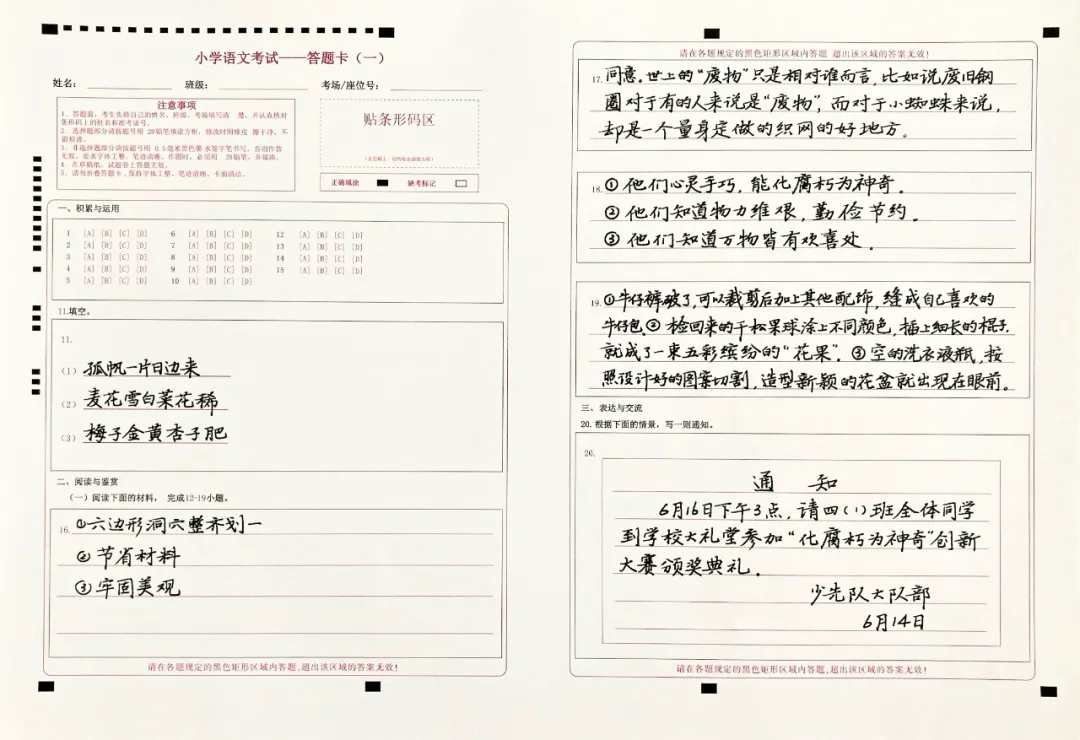 小学语文考试——答题卡（一）
姓名：
班级：
考场/座位号：
注意事项
1．答题前，考生先将自己的姓名、班级、考场填写清 楚，并认真核对
条形码上的姓名和准考证号。
2．选择题部分请按题号用 2B铅笔填涂方框，修改时用橡皮 擦干净，不
留痕迹。
3．非选择题部分请按题号用 0.5毫米黑色墨 水签字笔书写，否则作答
无效。要求字体工整、笔迹清晰。作图时，必须用 2B铅笔，并描浓。
4．在草稿纸、试题卷上答题无效。
5．请勿折叠答题卡，保持字体工整、笔迹清晰、卡面清洁。
贴条形码区
正确填涂
缺考标记
一、积累与运用
1 [A] [B] [C] [D] 6 [A] [B] [C] [D] 12 [A] [B] [C] [D]
2 [A] [B] [C] [D] 7 [A] [B] [C] [D] 13 [A] [B] [C] [D]
3 [A] [B] [C] [D] 8 [A] [B] [C] [D] 14 [A] [B] [C] [D]
4 [A] [B] [C] [D] 9 [A] [B] [C] [D] 15 [A] [B] [C] [D]
5 [A] [B] [C] [D] 10 [A] [B] [C] [D]
11.填空。
11.
（1）孤帆一片日边来
（2）麦花雪白菜花稀
（3）梅子金黄杏子肥
二、阅读与鉴赏
（一）阅读下面的材料， 完成12-19小题。
16. ①六边形洞穴整齐划一
②节省材料
③牢固美观
请在各题规定的黑色矩形区域内答题，超出该区域的答案无效！
请在各题规定的黑色矩形区域内答题 超出该区域的答案无效！
17. 同意。世上的“废物”只是相对谁而言，比如说废旧钢
圈对于有的人来说是“废物”，而对于小蜘蛛来说，
却是一个量身定做的织网的好地方。
18. ①他们心灵手巧，能化腐朽为神奇。
②他们知道物力维艰，勤俭节约。
③他们知道万物皆有欢喜处。
19. ①牛仔裤破了，可以裁剪后加上其他配饰，缝成自己喜欢的
牛仔包。②捡回来的干松果球涂上不同颜色，插上细长的棍子，
就成了一束五彩缤纷的“花果”。③空的洗衣液瓶，按
照设计好的图案切割，造型新颖的花盆就出现在眼前。
三、表达与交流
20. 根据下面的情景，写一则通知。
20.
通 知
6月16日下午3点，请四（1）班全体同学
到学校大礼堂参加“化腐朽为神奇”创新
大赛颁奖典礼。
少先队大队部
6月14日
请在各题规定的黑色矩形区域内答题，超出该区域的答案无效！